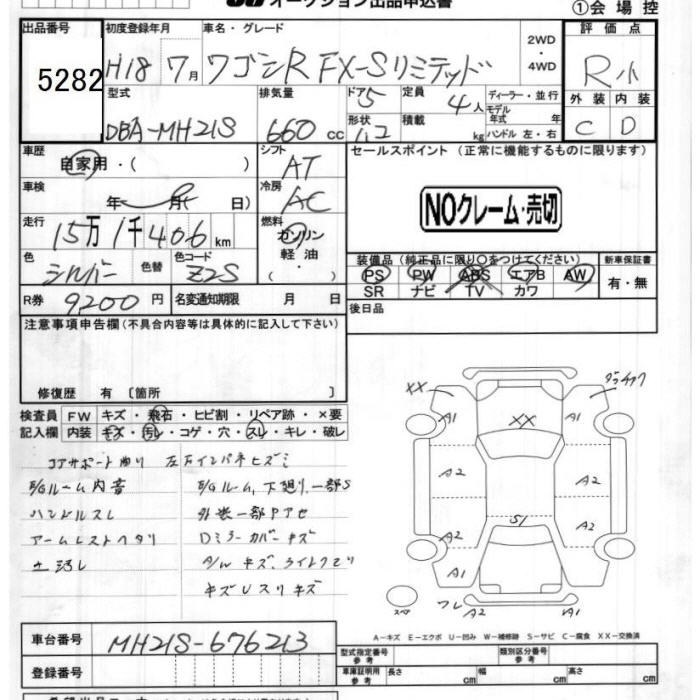 オークション出品申込書
①会場控
出品番号 初度登録年月 車名・グレード 2WD・4WD 評価点
5282 H18 7月 ワゴンR FX-Sリミテッド R小
型式 排気量 ドア 5 定員 4人 ディーラー・並行 外装 内装
モデル年式 年
DBA-MH21S 660cc 形状 ハコ 積載 kg ハンドル 左・右 C D
車歴 自家用・( ) シフト AT セールスポイント (正常に機能するものに限ります)
車検 年 月( 日) 冷房 AC
NOクレーム・売切
走行 15万1千406km 燃料 ガソリン 軽油
色 シルバー 色替 色コード Z2S
装備品(純正品に限り○をつけてください) 新車保証書
PS PW ABS エアB AW 有・無
SR ナビ TV カワ
R券 9200円 名変通知期限 月 日
後日品
注意事項申告欄(不具合内容等は具体的に記入して下さい)
修復歴 有 〔箇所 〕
検査員 FW キズ・飛石・ヒビ割・リペア跡・×要
記入欄 内装 キズ・汚レ・コゲ・穴・スレ・キレ・破レ
コアサポート曲り 左右インパネヒズミ
E/Gルーム内音 E/Gルーム、下廻り一部S
ハンドルスレ 外装一部Pアセ
アームレストヘタリ Dミラーカバーキズ
土汚レ A/Wキズ、ライトクモリ
キズUスリキズ
XX
A1 XX A1
A2 A2
A2 S1 A2
A1 A1
スペア フレ A1 A1
A−キズ E−エクボ U−凹み W−補修跡 S−サビ C−腐食 XX−交換済
車台番号 MH21S-676213
登録番号
型式指定番号 参考 類別区分番号 参考
車庫証明用 参考 長さ cm 幅 cm 高さ cm